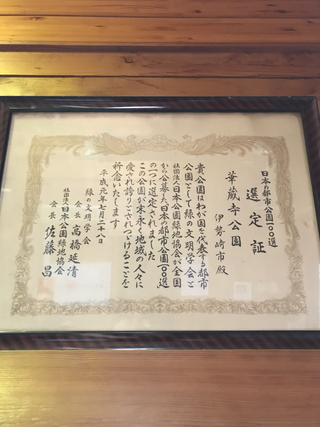 日本の都市公園一〇〇選
選定証
華蔵寺公園
伊勢崎市殿
貴公園はわが国を代表する都市
公園として緑の文明学会と
社団法人日本公園緑地協会が全国
から公募した日本の都市公園一〇〇選
の一つに選定されました
この公園が末永く地域の人々に
愛され誇りとされつづけることを
祈念いたします
平成元年七月二十八日
緑の文明学会
会長 高橋延清
社団法人日本公園緑地協会
会長 佐藤昌